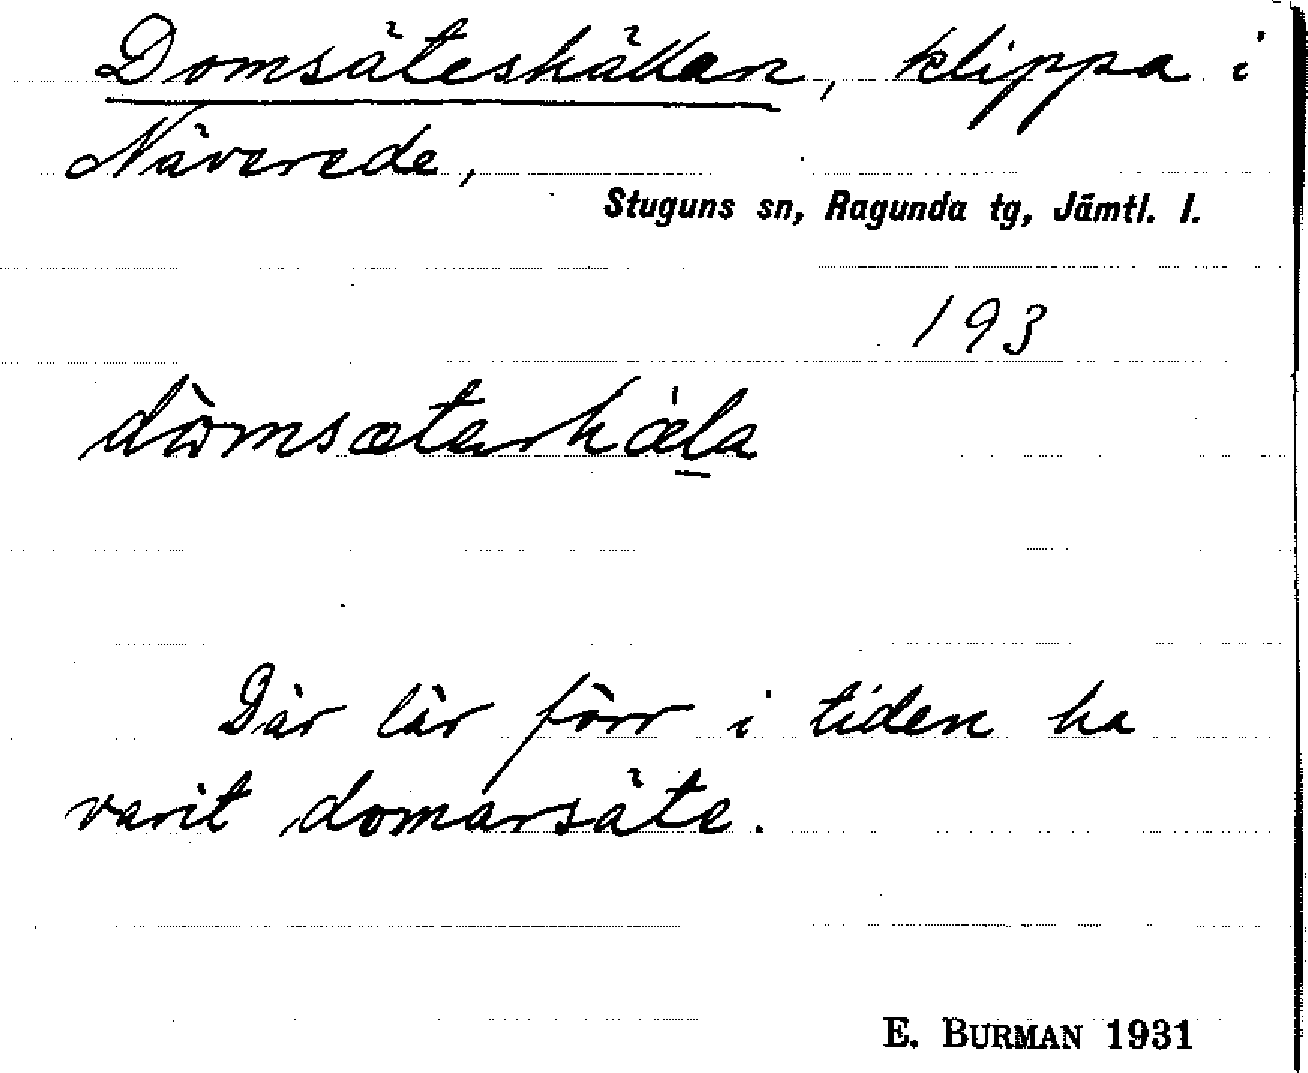 Domsäteshällan, klippa i
Näverede,
Stuguns sn, Ragunda tg, Jämtl. l.
193
dòmsæterhæ̀la
Där lär förr i tiden ha
varit domarsäte.
E. BURMAN 1931